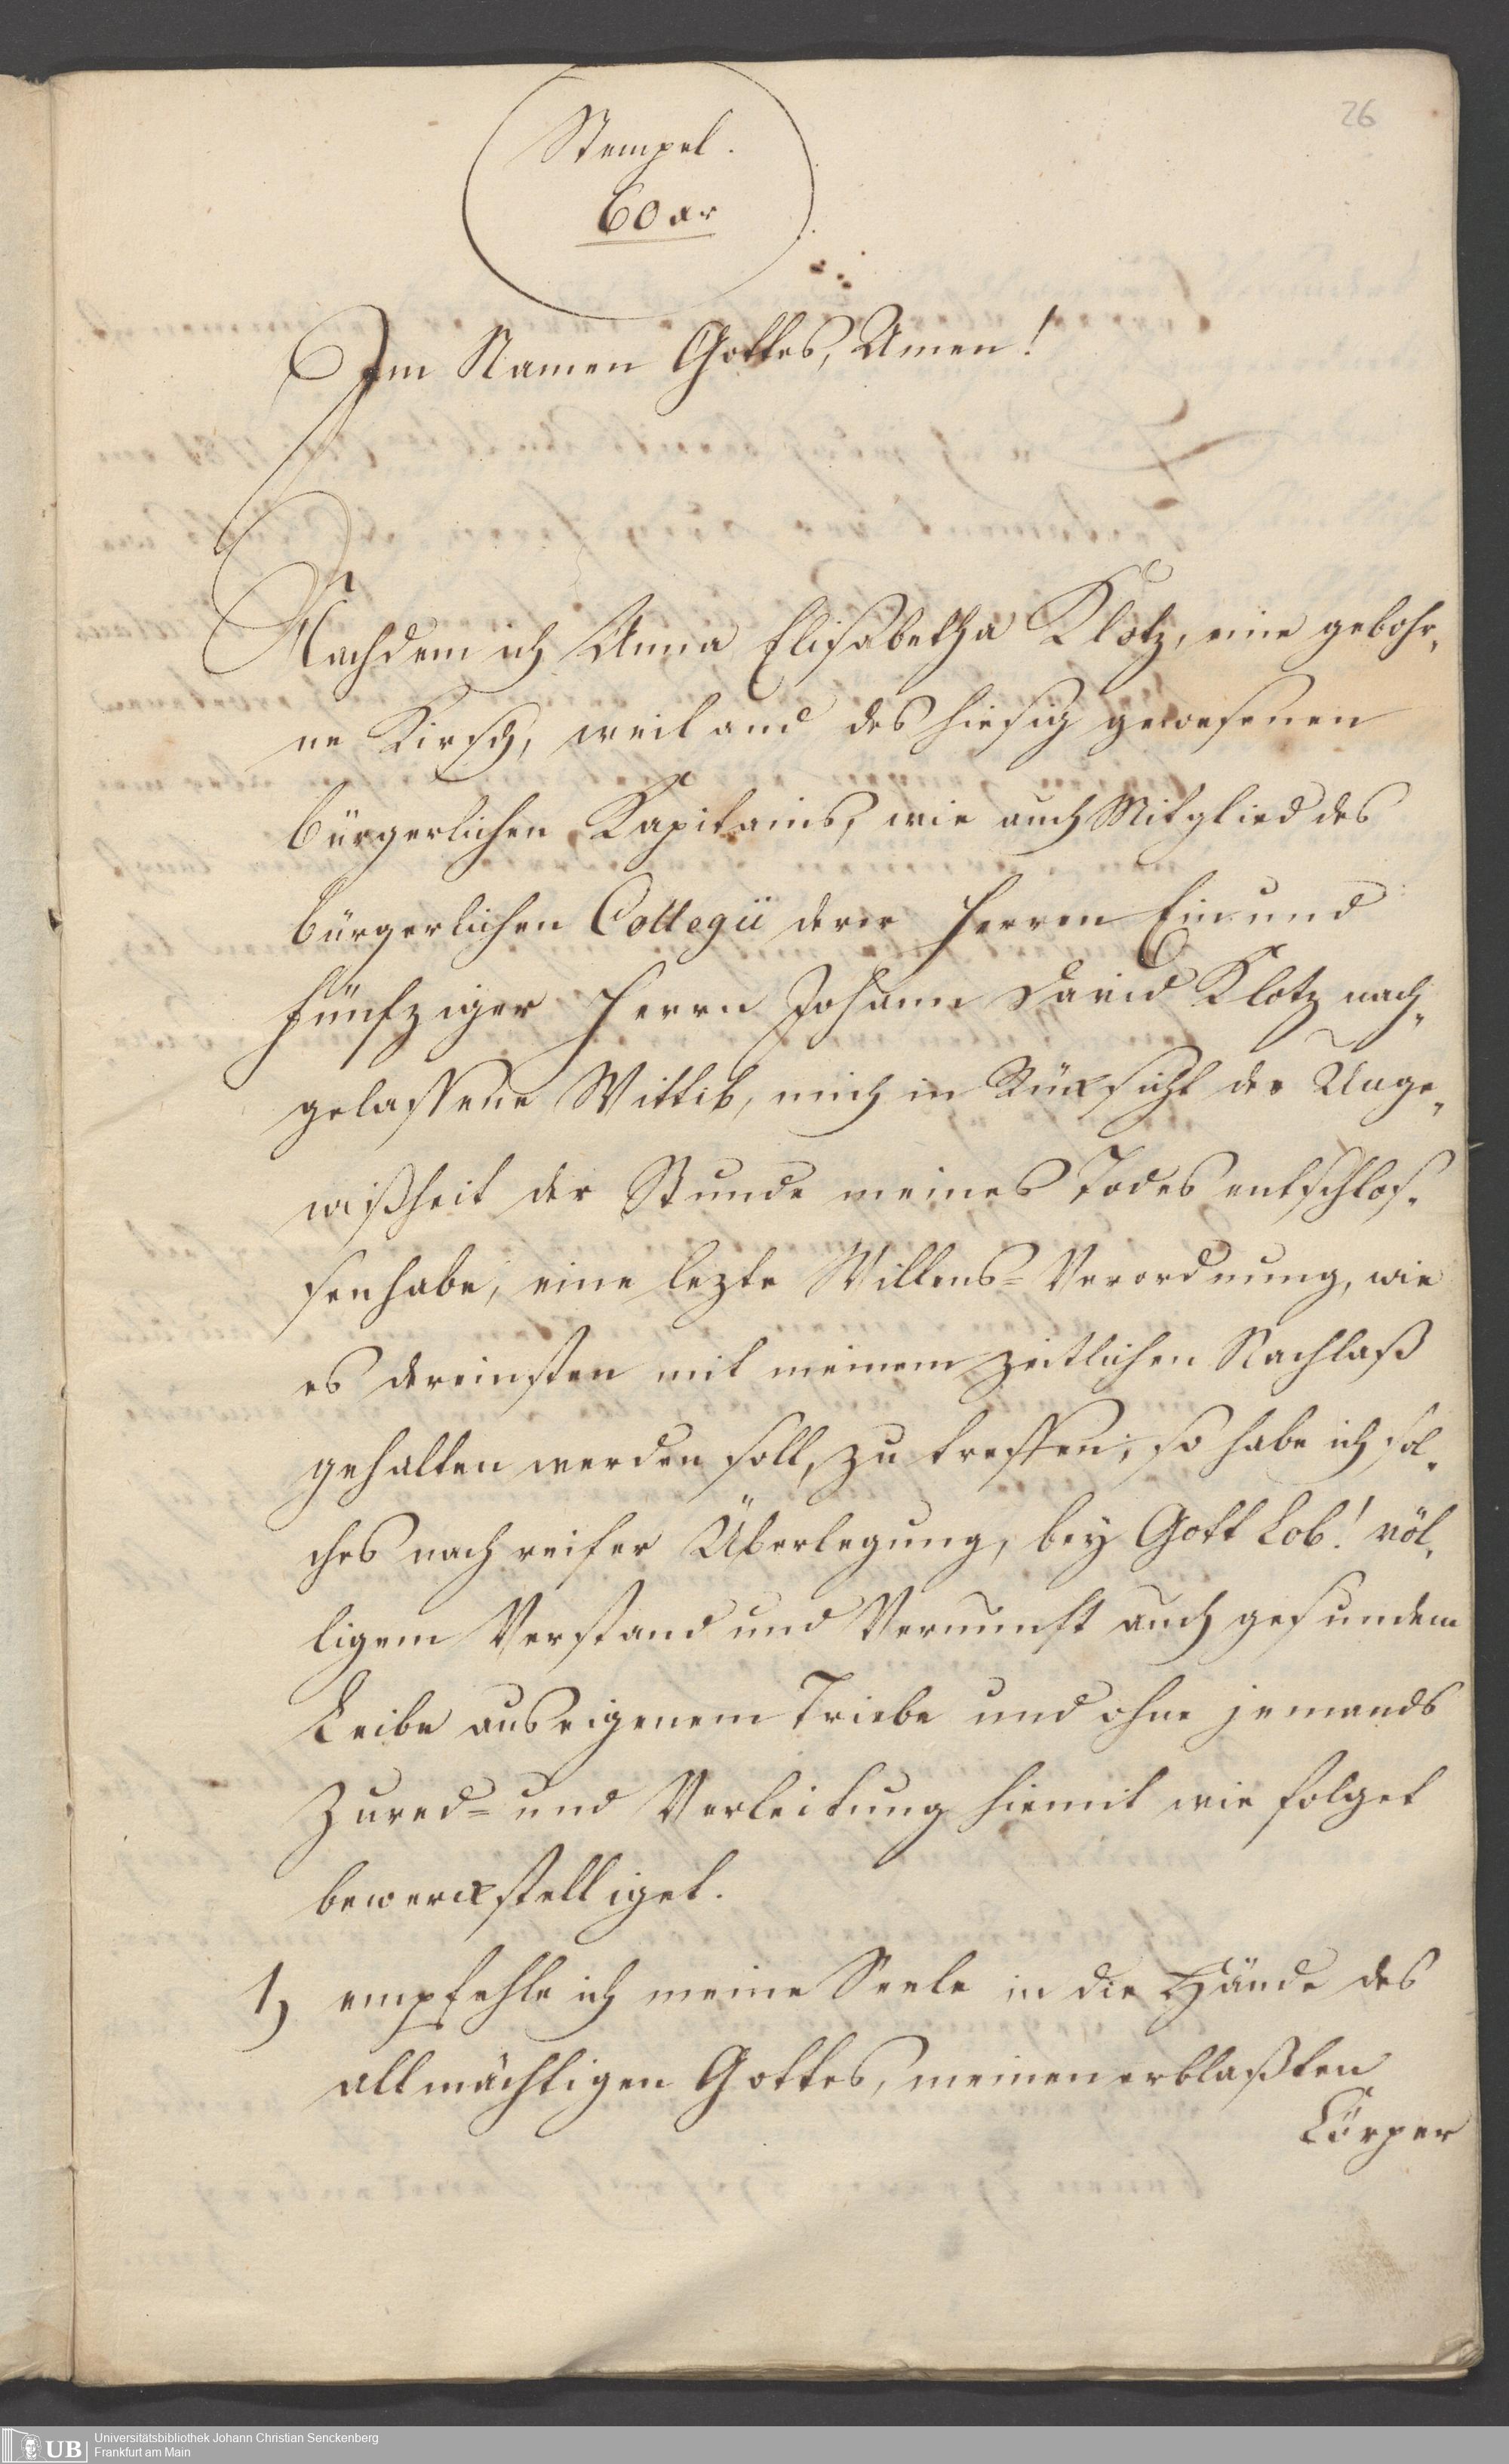 26
Stempel.
60 xr
Im Namen Gottes, Amen!
Nachdem ich Anna Elisabetha Klotz, eine gebohr„
ne Kirsch, weiland des hiesig gewesenen
bürgerlichen Kapitains, wie auch Mitglied des
bürgerlichen Collegii derer Herren Ein und
fünfziger Herrn Johann David Klotz nach„
gelassene Wittib, mich in Rüxsicht der Unge„
wißheit der Stunde meines Todes entschlos„
sen habe, eine lezte Willens=Verordnung, wie
es dereinsten mit meinem zeitlichen Nachlaß
gehalten werden soll, zu treffen; so habe ich sol„
ches nach reifer Überlegung, bey Gott Lob! völ„
ligem Verstand und Vernunft auch gesundem
Leibe aus eigenem Triebe und ohne jemands
Zured= und Verleitung hiemit wie folget
bewerckstelliget.
1) empfehle ich meine Seele in die Hände des
allmächtigen Gottes, meinen erblaßten
Cörper
UB
Universitätsbibliothek Johann Christian Senckenberg
Frankfurt am Main